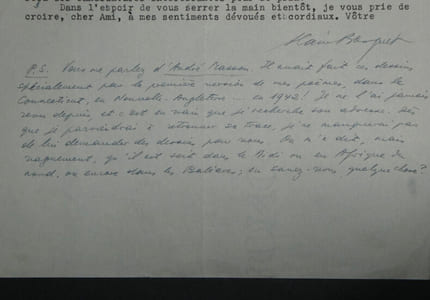 Dans l'etpoir de vous serrer la main bientôt, je vous prie de
croire, cher Ami, à mes sentiments dévoués et cordiaux. Vôtre
Alain Bosquet
P.S. Vous me parlez d'André Masson. Il avait fait ces dessins
spécialement pour la première version de mes poèmes, dans le
Connecticut, en Nouvelle-Angleterre... en 1942! Je ne l'ai jamais
revu depuis, et c'est en vain que je recherche son adresse. Dès
que je parviendrai à retrouver sa trace, je ne manquerai pas
de lui demander des dessins pour nous. On m'a dit, mais
vaguement, qu'il est soit dans le Midi ou en Afrique du
nord, ou encore dans les Baléares; en savez-vous quelque chose?